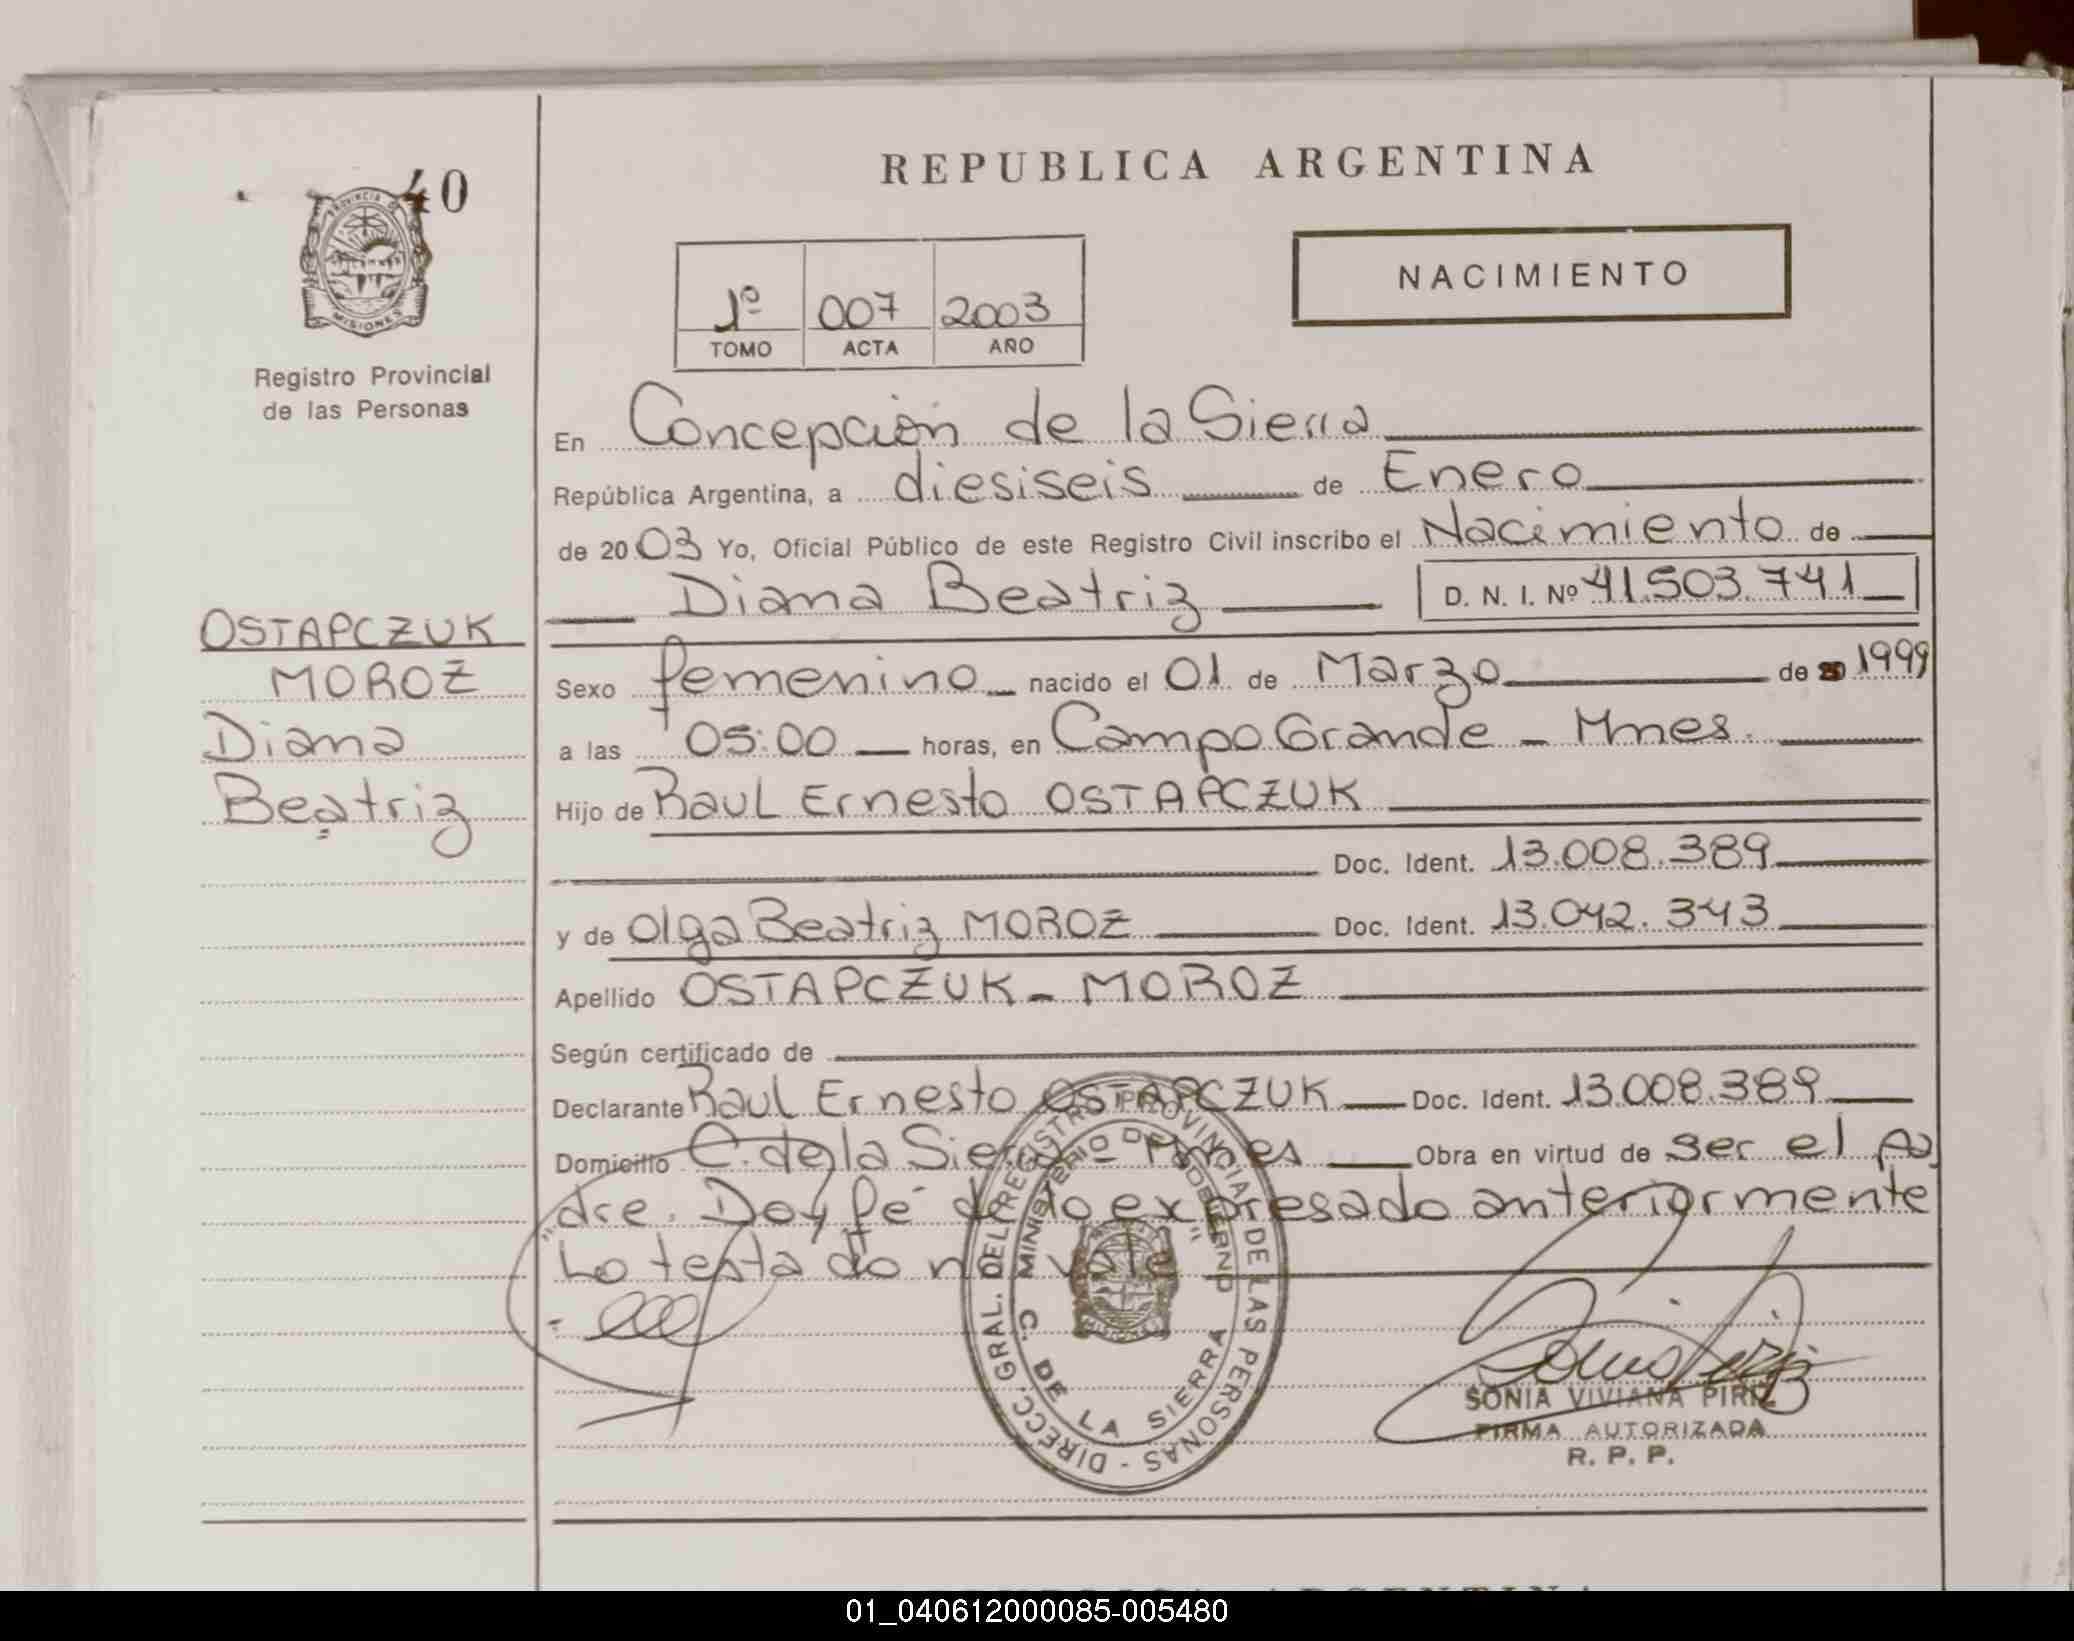 REPUBLICA ARGENTINA
40
PROVINCIA DE
MISIONES
Registro Provincial
de las Personas
NACIMIENTO
1º 007 2003
TOMO ACTA AÑO
En Concepción de la Sierra
República Argentina, a diesiseis de Enero
de 2003 Yo, Oficial Público de este Registro Civil inscribo el Nacimiento de
Diana Beatriz D. N. I. Nº 41.503.741
OSTAPCZUK
MOROZ
Diana
Beatriz
Sexo femenino nacido el 01 de Marzo de 1999
a las 05:00 horas, en Campo Grande - Mnes.
Hijo de Raul Ernesto OSTAPCZUK
Doc. Ident. 13.008.389
y de Olga Beatriz MOROZ Doc. Ident. 13.042.343
Apellido OSTAPCZUK - MOROZ
Según certificado de
Declarante Raul Ernesto OSTAPCZUK Doc. Ident. 13.008.389
Domicilio C. de la Sierra - Mnes Obra en virtud de ser el Pa
dre. Doy fé de lo expresado anteriormente
"Lo testado no vale"
DIRECC. GRAL. DEL REGISTRO PROVINCIAL DE LAS PERSONAS -
MINISTERIO DE GOBIERNO
C. DE LA SIERRA
MISIONES
SONIA VIVIANA PIRIZ
FIRMA AUTORIZADA
R. P. P.
REPUBLICA ARGENTINA
01_040612000085-005480